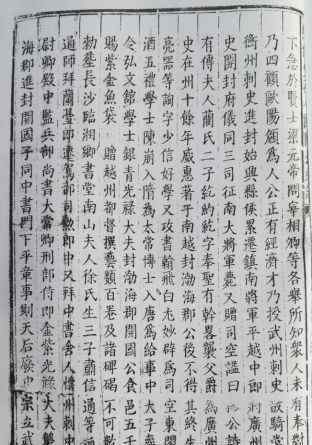 下急於賢士梁元帝問宰相卿等各舉所知衆人未有奉對
乃四顧歐陽頠爲人公正有經濟才乃授武州刺史
衡州刺史進封始興縣侯累遷鎮南將軍平越中郎將廣州
史開封府儀同三司征南大將軍薨又贈司空謚曰公
有傳夫人藺氏二子紇約紇字奉聖有幹畧襲父爵爲廣州
史在州十餘年威惠著于南越封渤海郡公後不得其終生
亮器等詢字少信好學又攻書翰飛白尤妙辟爲司空東
酒五禮學士陳崩入隋爲太常博士入唐爲給事中太子率
令弘文館學士銀青光禄大夫封渤海郡開國公食邑五千
賜紫金魚袋 贈越州都督撰藝類百卷及諸碑碣不可
勑墓長沙臨湘鄉書堂南山夫人徐氏生三子肅信通等
通師拜蘭臺郎遷駕部司勲郎中又拜中書舍人州刺史
尉卿殿中監兵部尚書大常卿刑部侍郎金紫光禄大夫
海郡進封開國子同中書門下平章事則天后廢中宗立武